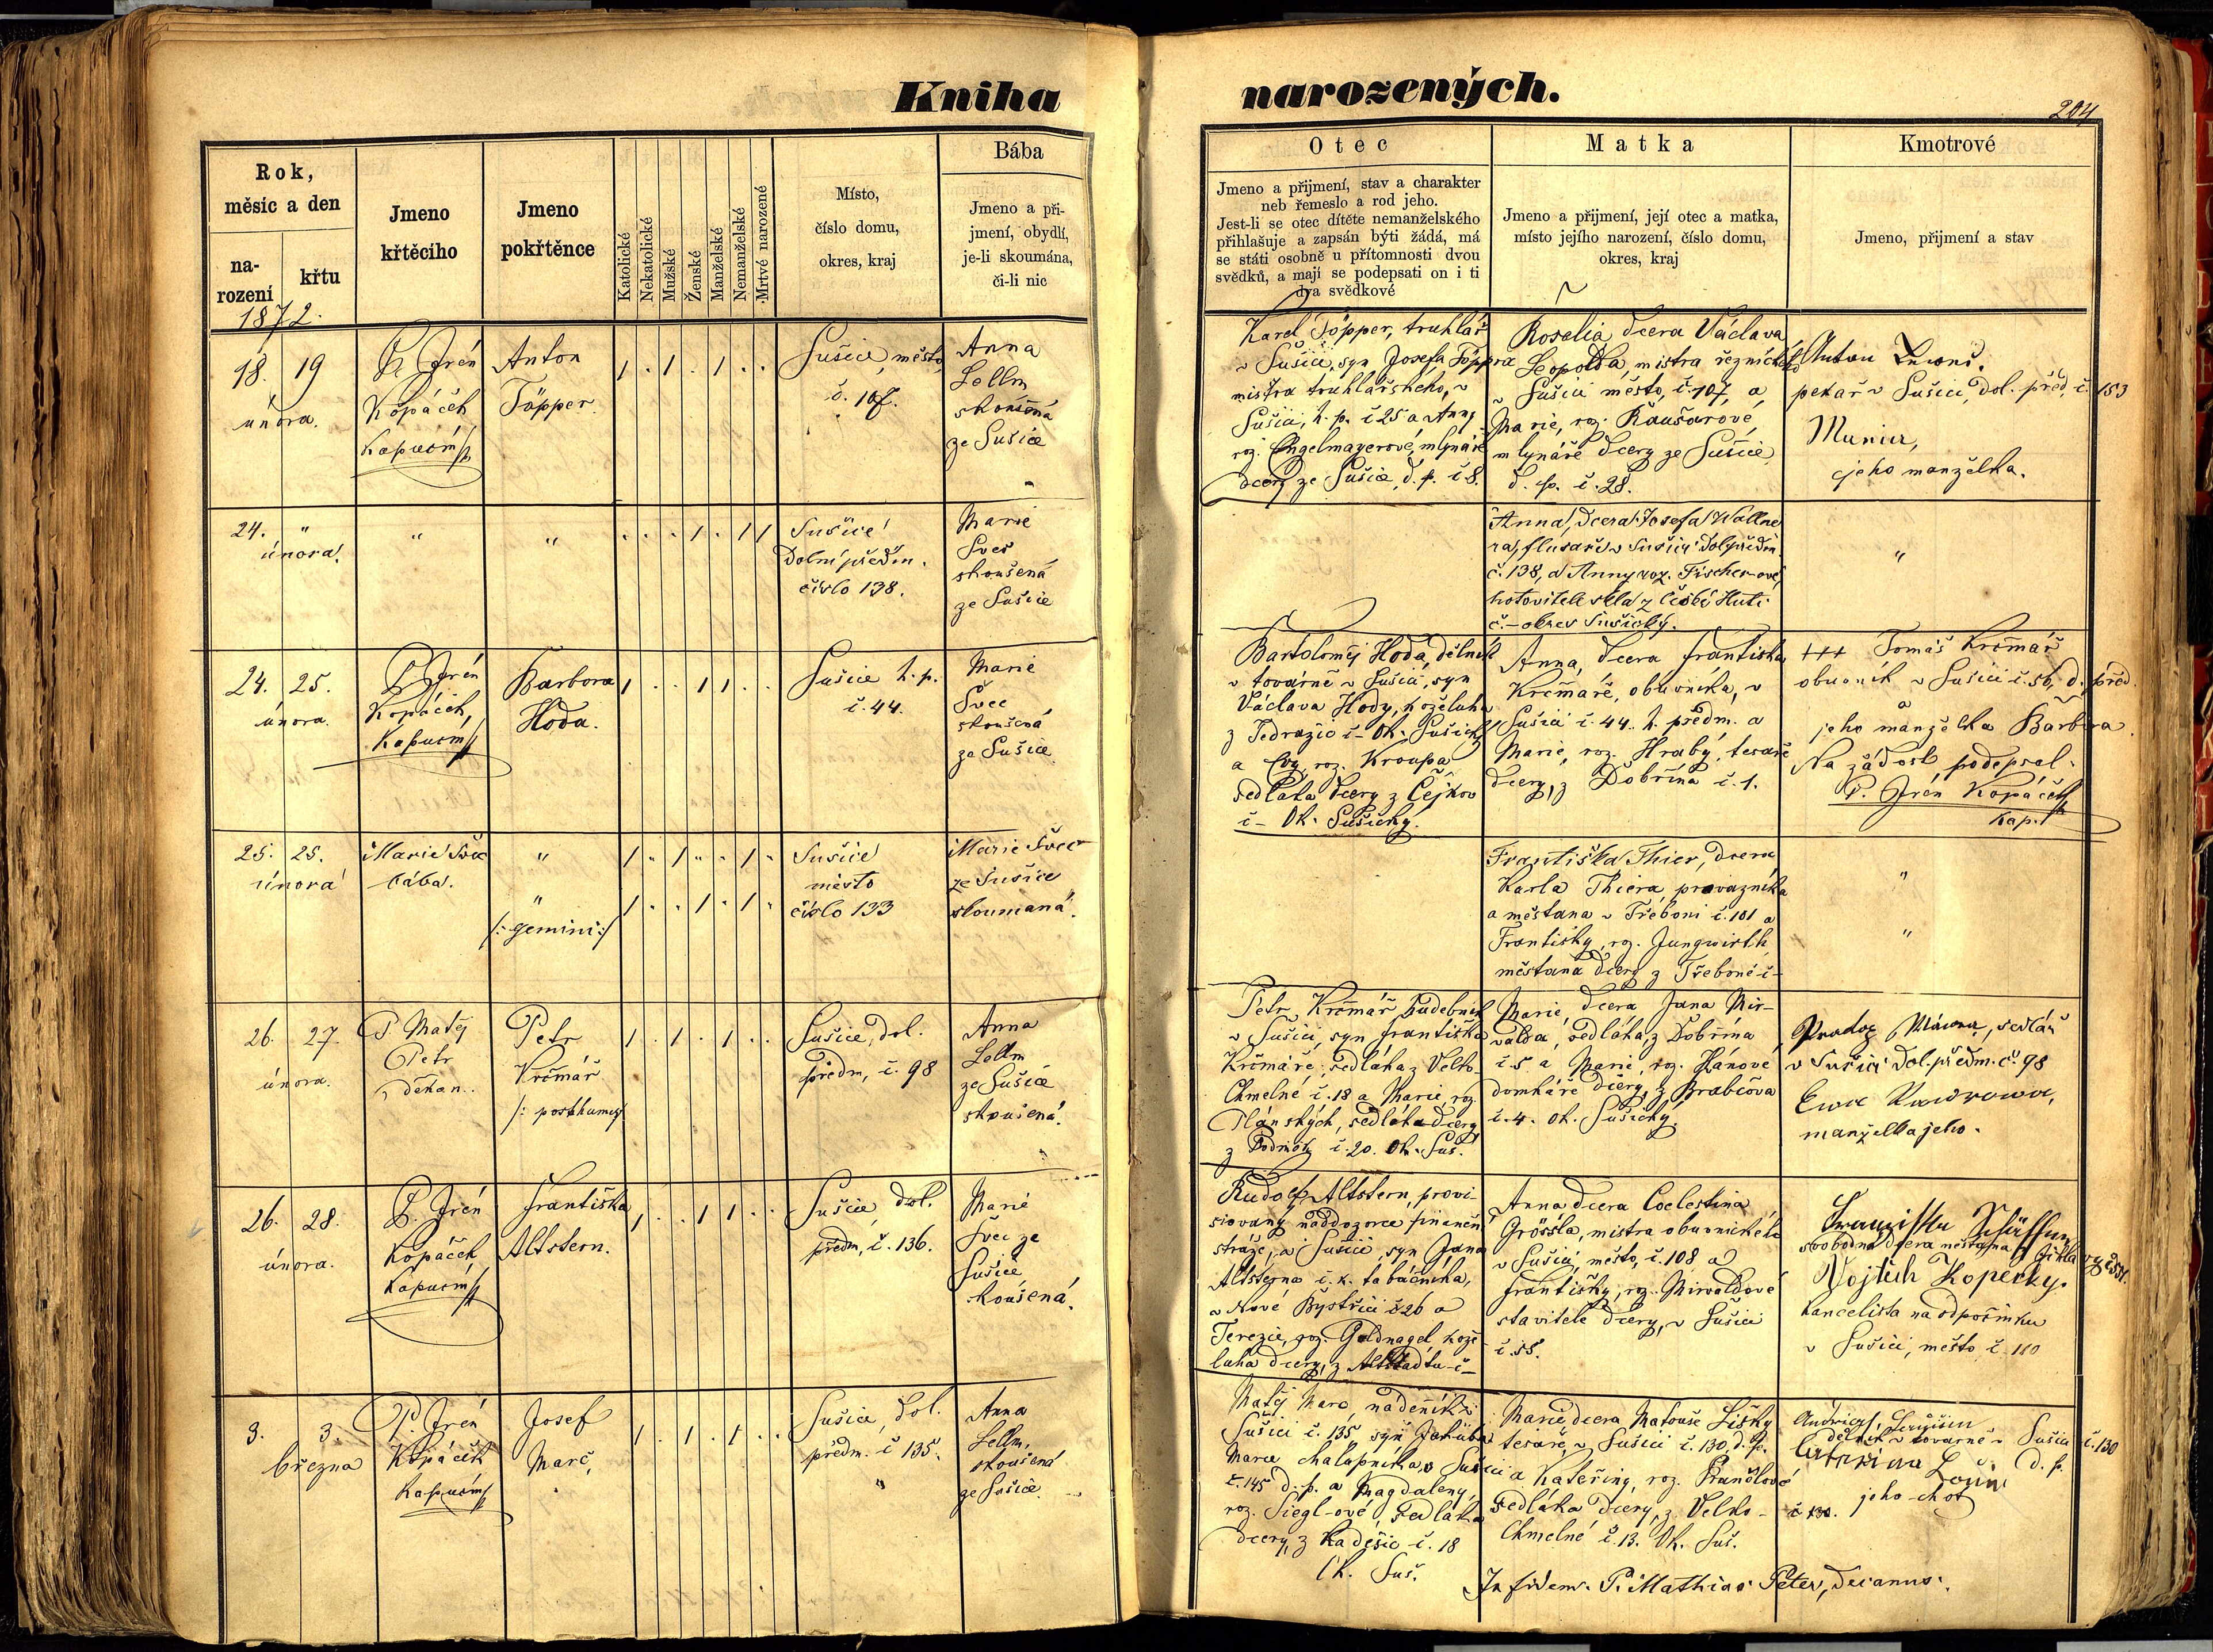 Kniha narozených.
204
Rok,
měsíc a den
na-
rození
křtu
Jmeno
křtěcího
Jmeno
pokřtěnce
Katolické
Nekatolické
Mužské
Ženské
Manželské
Nemanželské
Mrtvé narozené
Místo,
číslo domu,
okres, kraj
Bába
Jmeno a při-
jmení, obydlí,
je-li skoumána,
či-li nic
Otec
Jmeno a přijmení, stav a charakter
neb řemeslo a rod jeho.
Jest-li se otec dítěte nemanželského
přihlašuje a zapsán býti žádá, má
se státi osobně u přítomnosti dvou
svědků, a mají se podepsati on i ti
dva svědkové
Matka
Jmeno a přijmení, její otec a matka,
místo jejího narození, číslo domu,
okres, kraj
Kmotrové
Jmeno, přijmení a stav
1872.
18. 19
února.
P. Irén
Kopáček
Kapucín
Anton
Töpper.
1 . 1 . 1 . .
Sušice, město,
č. 107.
Anna
Lellm
skoušená
ze Sušice
Karel Töpper, truhlář
v Sušici, syn Josefa Töppra
mistra truhlářského, v
Sušici, h. p. č 25 a Anny
roz. Engelmayerové, mlynáře
dcery ze Sušice, d. p. č 8.
Roselia dcera Václava
Leopolda, mistra řeznického
v Sušici město, č. 107, a
Marie, roz. Kaušarové,
mlynáře dcery ze Sušice
d. p. č. 28.
Anton
pekař v Sušici, dol. před, č. 153
jeho manželka.
24. "
února.
"
"
. . . 1 . 1 1
Sušice
Dolní předm.
číslo 138.
Marie
Švec
skoušená
ze Sušice
Anna, dcera Josefa Wallne
ra, flusaře v Sušici dol. předm.
č. 138, a Anny roz. Fischer-ové,
hotovitele skla z České Huti
č. – okres Sušický.
"
24. 25.
února.
P. Irén
Kopáček,
Kapucín
Barbora
Hoda.
1 . . 1 1 . .
Sušice h. p.
č. 44.
Marie
Švec
skoušená
ze Sušice
Bartoloměj Hoda, dělník
v továrně v Sušici, syn
Václava Hody, koželuha
z Tedražic č – Ok. Sušický
a Evy, roz. Kroupa
sedláka dcery z Čejkov
č – Ok. Sušický.
Anna, dcera Františka
Krčmáře, obuvníka, v
Sušici č. 44. h. předm. a
Marie, roz. Hrabý, tesaře
dcery, z Dobřína č. 1.
+++ Tomáš Krčmář
obuvník v Sušici č. 56, d. před.
jeho manželka Barbora.
Na žádost podepsal
P. Irén Kopáček
Kap.
25. 25.
února
Marie Švec
bába.
"
"
/: gemini :/
1 . 1 . . 1 .
1 . . 1 . 1 .
Sušice
město
číslo 133
Marie Švec
ze Sušice
skoumaná.
Františka Thier, dcera
Karla Thiera provazníka
a měšťana v Třeboni č. 101 a
Františky, roz. Jungwirth
měšťana dcery z Třeboně č –
"
"
26. 27
února.
P. Matěj
Petr
děkan.
Petr
Krčmář
/: posthumus :/
1 . 1 . 1 . .
Sušice, dol.
předm, č. 98
Anna
Lellm
ze Sušice
skoušená.
Petr Krčmář hudebník
v Sušici, syn Františka
Krčmáře, sedláka z Velko-
Chmelné č. 18 a Marie, roz.
Plánských, sedláka dcery
z Podmok č. 20. Ok. Suš.
Marie, dcera Jana Mir-
valda, sedláka, z Dobřína
č. 5 a Marie, roz. Hánové
domkáře dcery, z Hrabčova
č. 4. Ok. Sušický.
sedlář
v Sušici dol. předm. č. 98
manželka jeho.
26. 28.
února.
P. Irén
Kopáček
Kapucín
Františka
Altstern.
1 . . 1 1 . .
Sušice, dol.
předm, č. 136.
Marie
Švec ze
Sušice
skoušená.
Rudolf Altstern, provi-
siovaný naddozorce finanční
stráže, v Sušici, syn Jana
Altsterna c. k. tabáčníka,
v Nové Bystřici č 26 a
Terezie, roz. Goldnagel kože-
luha dcery, z Altstadtu č –
Anna dcera Coelestina
Grössla, mistra obuvnického
v Sušici, město, č. 108 a
Františky, roz. Mirvaldové
stavitele dcery, v Sušici
č. 55.
Franziska
svobodná dcera měšťana
Vojtěch Kopecky.
Kancelista na odpočinku
v Sušici, město č. 110
3. 3.
března
P. Irén
Kopáček
Kapucín
Josef
Marč,
1 . 1 . 1 . .
Sušice, dol.
předm. č 135.
"
Anna
Lellm,
skoušená
ze Sušice.
Matěj Marč, nádenník z
Sušici č. 135 syn Jakuba
Marce chalupníka v Sušici
č. 145 d. p. a Magdaleny,
roz. Siegl-ové, sedláka
dcery, z Kadešic č. 18
Ok. Suš.
Marie dcera Matouše Lišky
tesaře, v Sušici č. 130, d. p.
a Kateřiny, roz. Prunclové
sedláka dcery, z Velko-
Chmelné č. 13. Ok. Suš.
dělník v továrně v Sušici č. 130
d. p.
jeho choť
č 130.
In fidem. P. Mathias Peter, decanus.